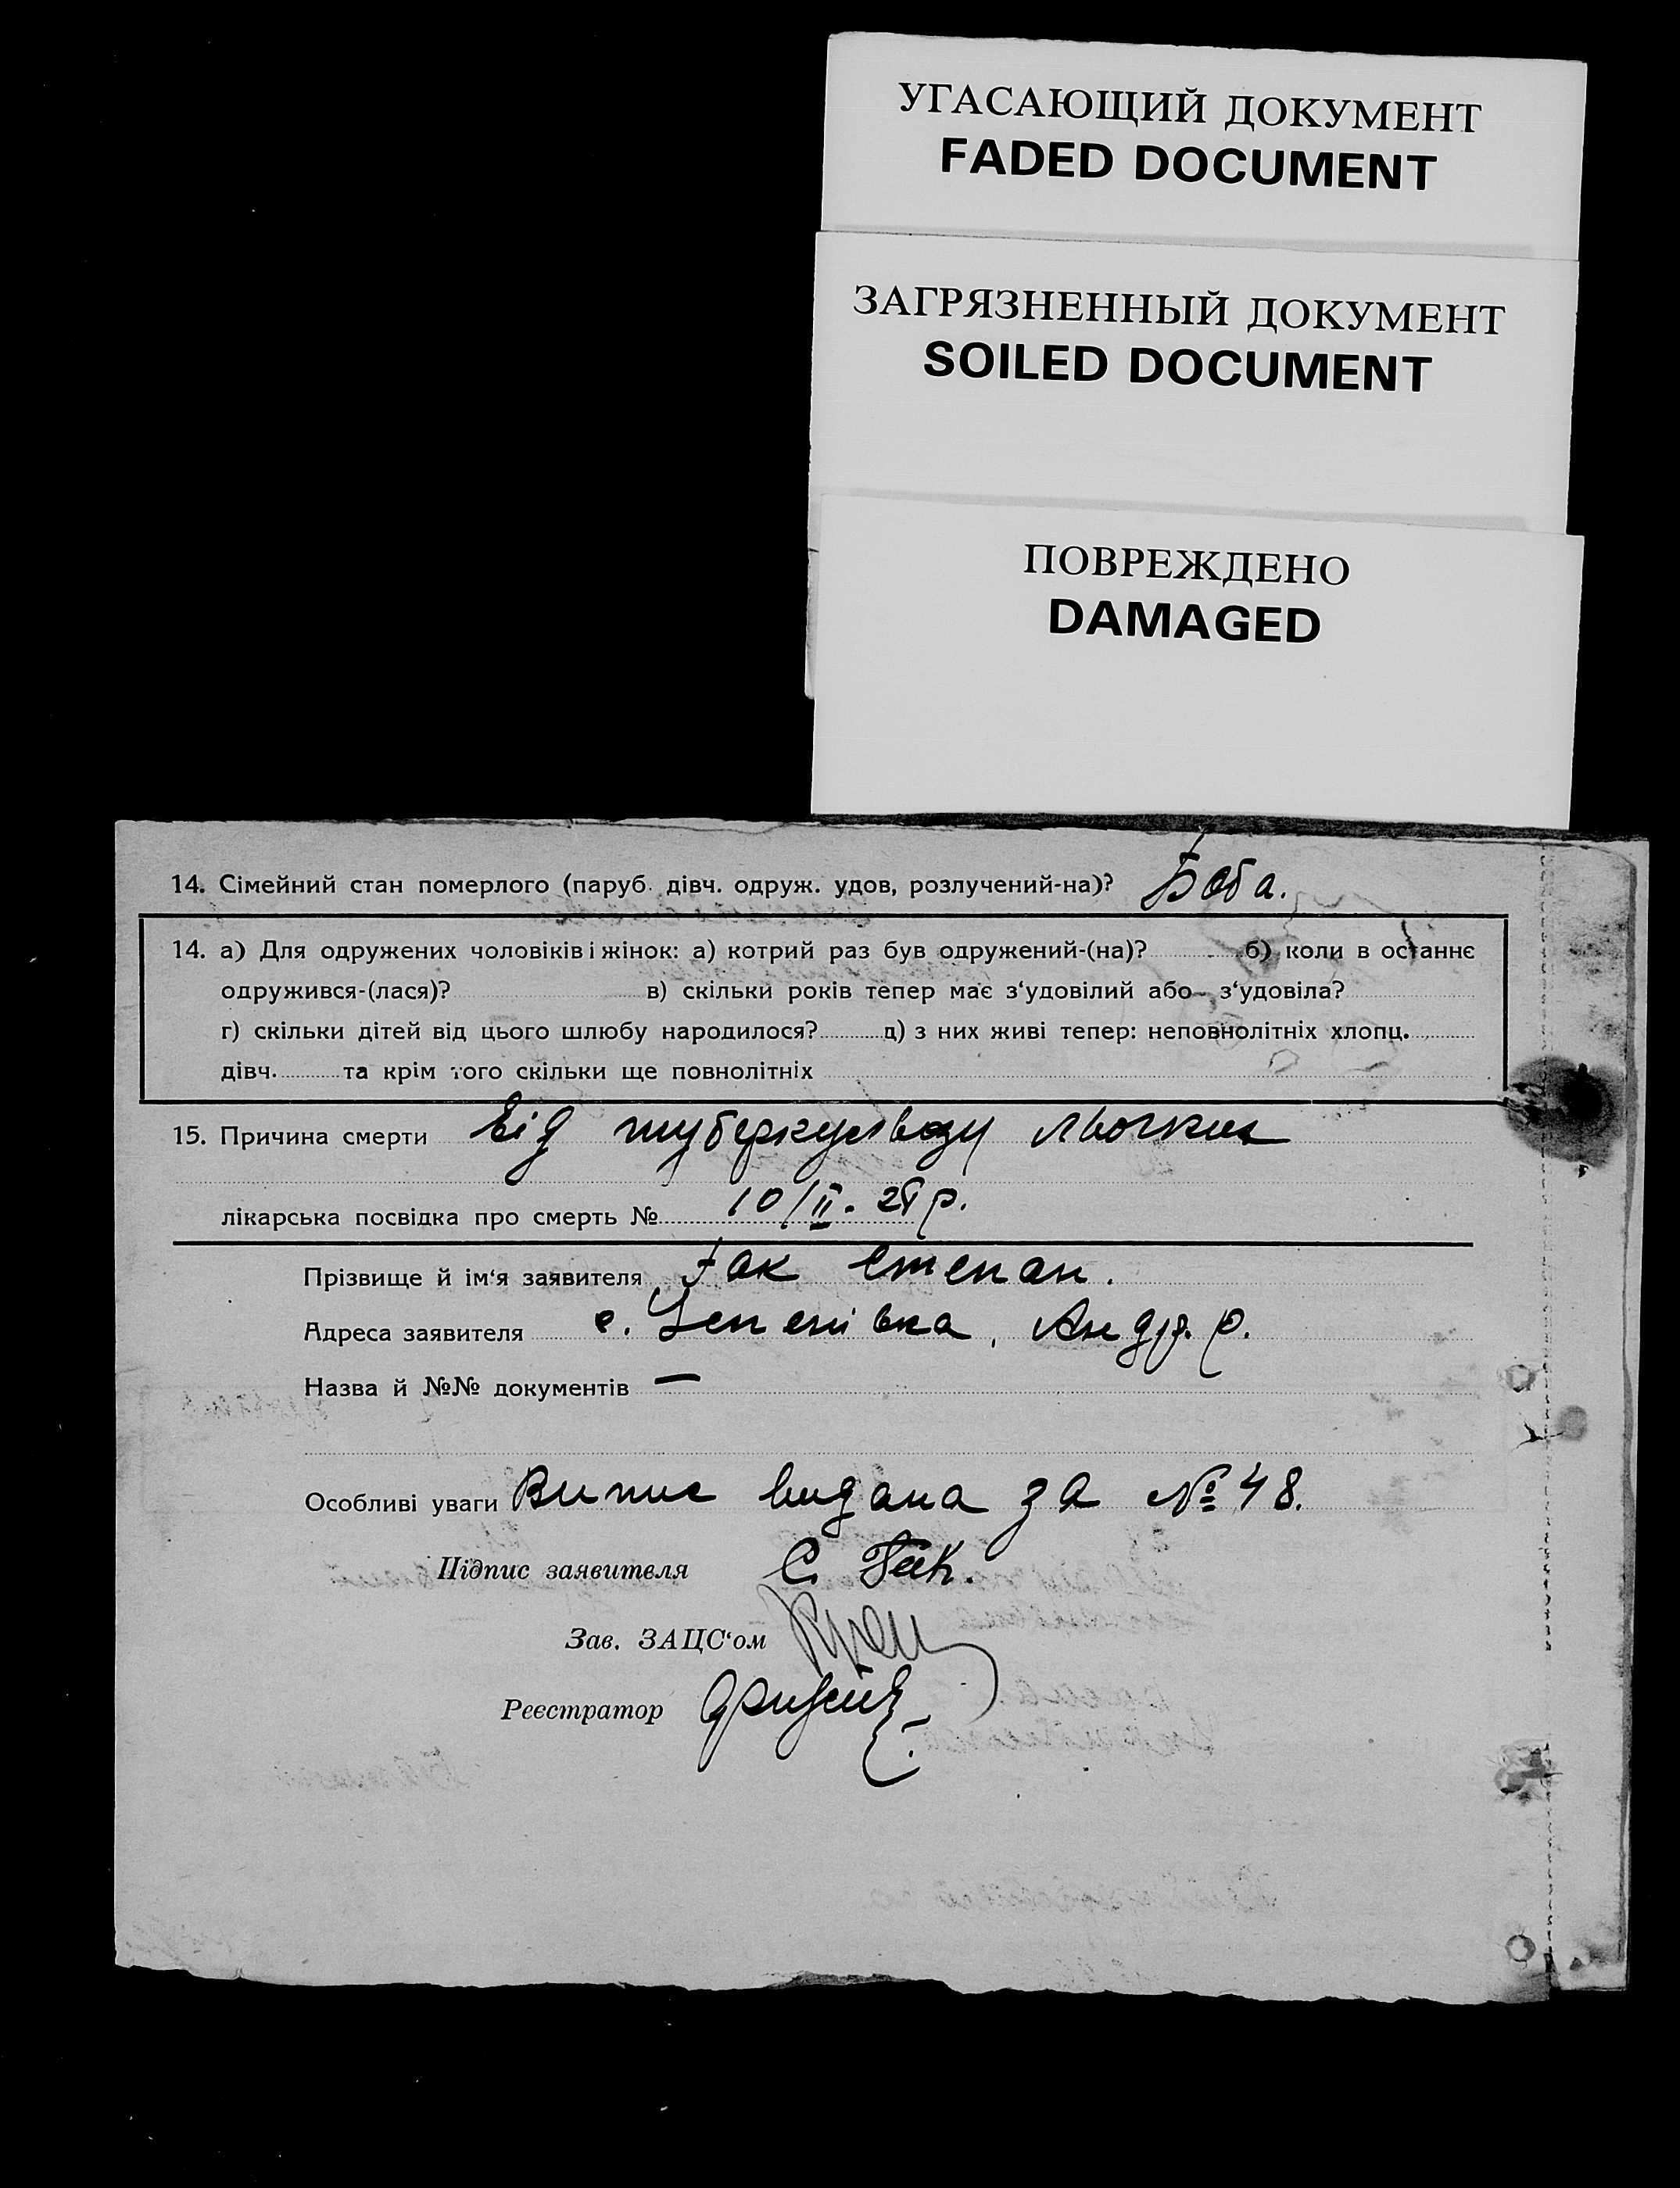 УГАСАЮЩИЙ ДОКУМЕНТ
FADED DOCUMENT
ЗАГРЯЗНЕННЫЙ ДОКУМЕНТ
SOILED DOCUMENT
ПОВРЕЖДЕНО
DAMAGED
14. Сімейний стан померлого (паруб. дівч. одруж. удов, розлучений-на)? Баба.
14. а) Для одружених чоловіків і жінок: а) котрий раз був одружений-(на)? б) коли в останнє
одружився-(лася)? в) скільки років тепер має з‘удовілий або з‘удовіла?
г) скільки дітей від цього шлюбу народилося? д) з них живі тепер: неповнолітніх хлопц.
дівч. та крім того скільки ще повнолітніх
15. Причина смерти Від туберкульозу льогких
лікарська посвідка про смерть № 10/II.
Прізвище й ім‘я заявителя Гак Степан.
Адреса заявителя с. Андр. р.
Назва й №№ документів —
Особливі уваги Випис видана за № 48.
Підпис заявителя С. Гак.
Зав. ЗАЦС‘ом
Реєстратор